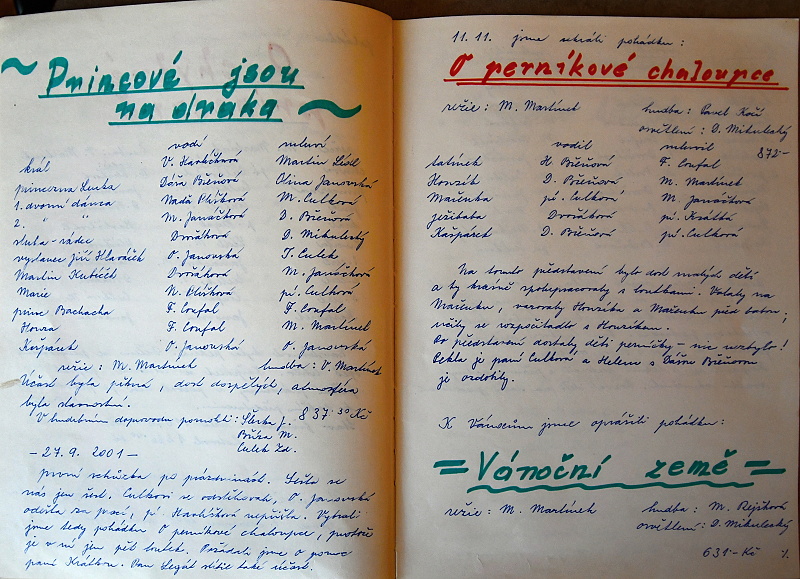 ~ Princové jsou
na draka ~
vodí mluví
král V. Havlíčková Martin Lédl
princezna Lenka Dáša Bieňová Olina Janovská
1. dvorní dáma Naďa Plíšková M. Culková
2. " " M. Janáčková D. Bieňová
sluha - rádce Dvořáková D. Mikulecký
vyslanec Jiří Hlaváček O. Janovská J. Culek
Martin Kubíček Dvořáková M. Janáčková
Marie N. Plíšková pí. Culková
princ Bachacha F. Coufal F. Coufal
Honza F. Coufal M. Martínek
Kašpárek O. Janovská O. Janovská
režie: M. Martínek hudba: V. Martínek
Účast byla pěkná, dost dospělých, atmosféra
byla slavnostní.
V hudebním doprovodu pomohli: J. 837.30 Kč
Bůža M.
Culek Zd.
- 27. 9. 2001 -
první schůzka po prázdninách. Sešlo se
nás jen šest. Culkovi se odstěhovali, O. Janovská
odešla za prací, p. Havlíčková nepřišla. Vybrali
jsme tedy pohádku O perníkové chaloupce, protože
je v ní jen pět loutek. Požádali jsme o pomoc
paní Králkovou. Pan Legát slíbil také účast.
11. 11. jsme sehráli pohádku:
O perníkové chaloupce
režie: M. Martínek hudba: Pavel Kočí
osvětlení: D. Mikulecký
vodil mluvil 872.-
tatínek H. Bieňová F. Coufal
Honzík D. Bieňová M. Martínek
Mařenka pí. Culková M. Janáčková
ježibaba Dvořáková pí. Králková
Kašpárek D. Bieňová pí. Culková
Na tomto představení bylo dost malých dětí
a ty krásně spolupracovaly s loutkami. Volaly na
Mařenku, varovaly Honzíka a Mařenku před babou,
učily se rozpočitadlo s Honzíkem.
Po představení dostaly děti perníčky - nic nezbylo!
Pekla je paní Culková a Helena s Dášou Bieňovou
je ozdobily.
K Vánocům jsme oprášili pohádku:
= Vánoční země =
režie: M. Martínek hudba: M. Rejšková
osvětlení: D. Mikulecký
631.- Kč ·/.